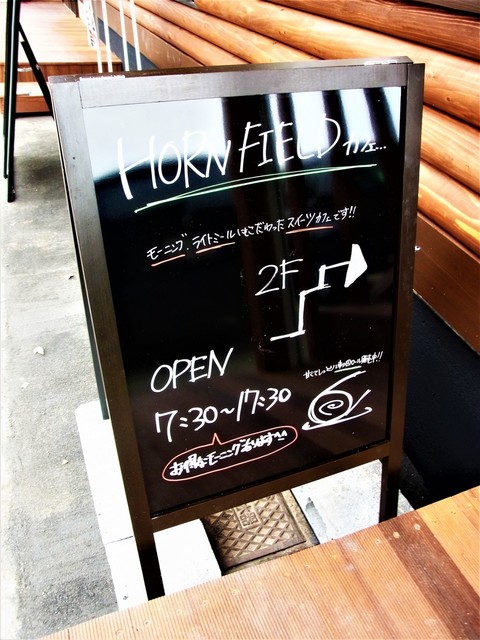 HORN FIELD カフェ...
モーニング、ライトミールにもこだわったスイーツカフェです!!
2F
OPEN
7:30〜17:30
お得なモーニングあります〜